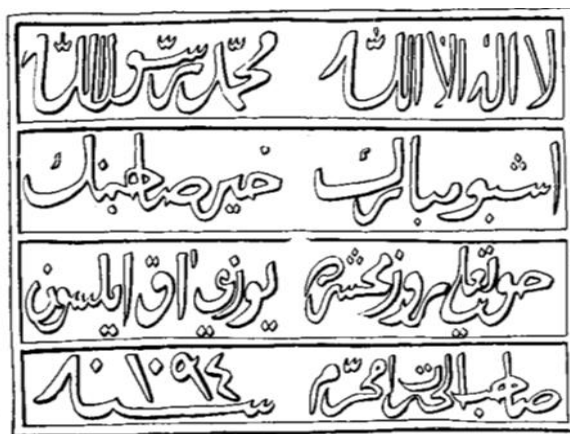 لا اله الا الله محمد رسول الله
اشبو مبارك خير صاحبنك
تعالى روز محشرده يوزين اق ايلسون
صاحب محرم سنه ١٠٩٤